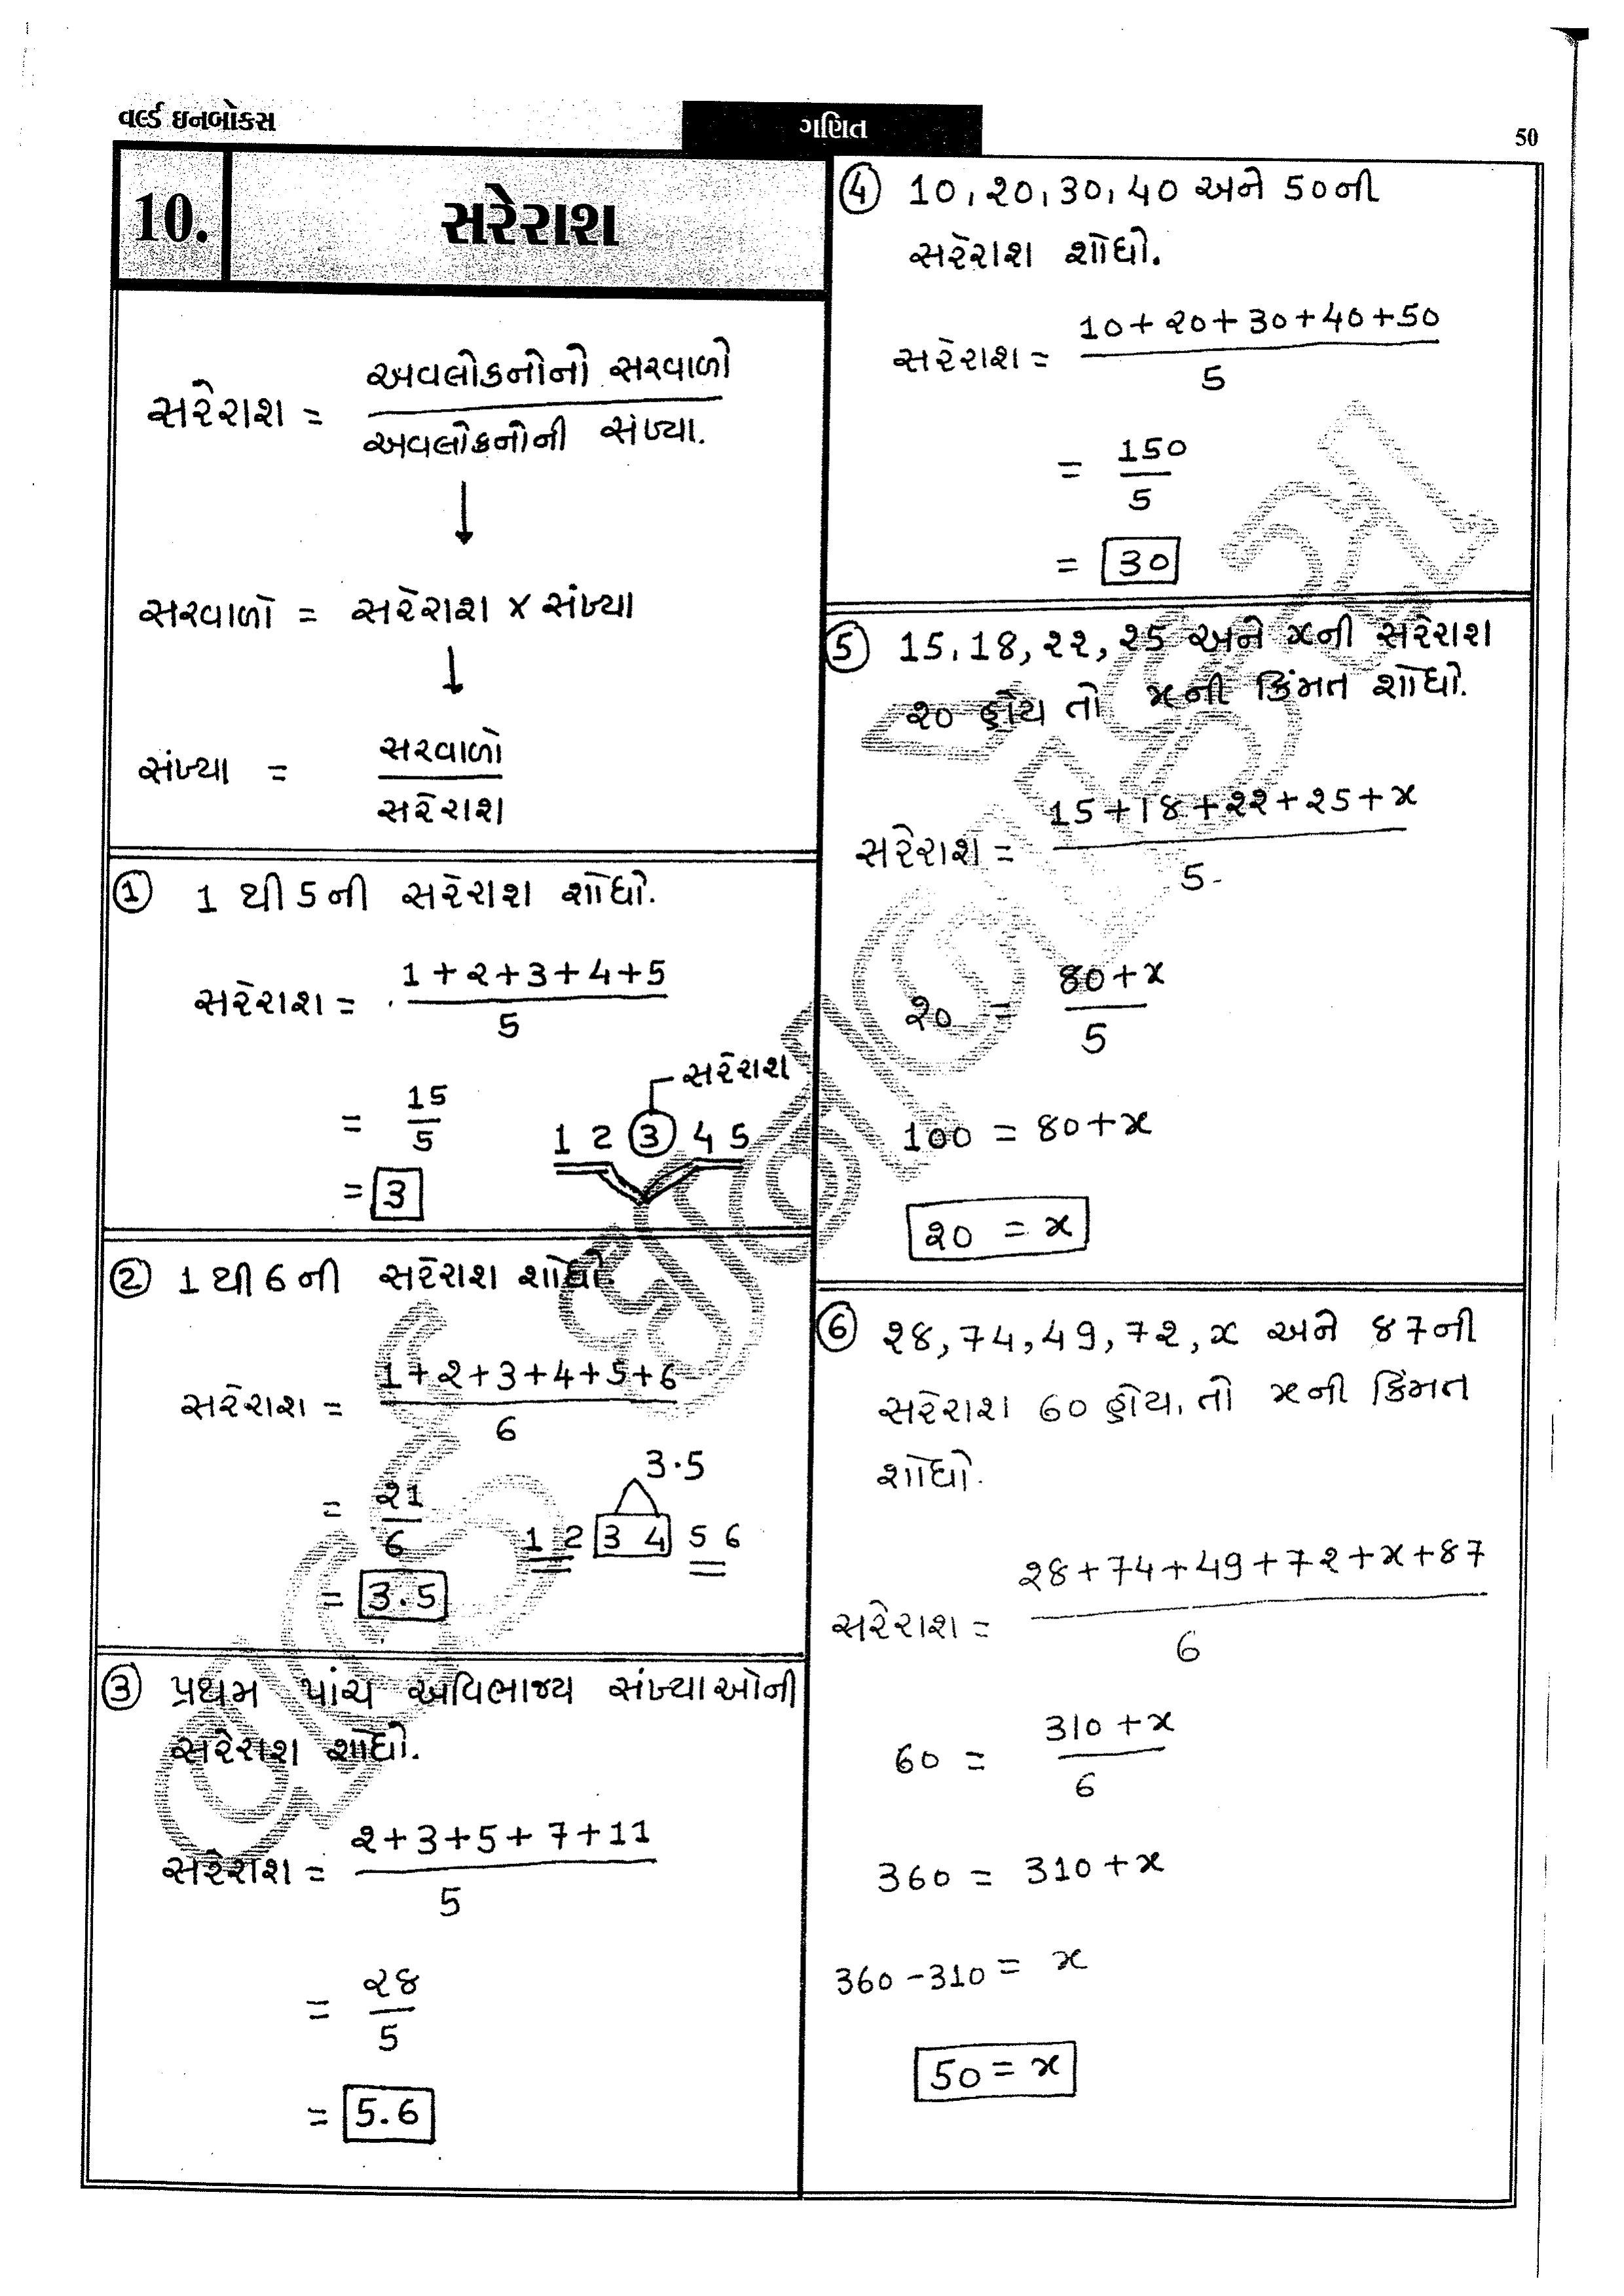 વર્લ્ડ ઇનબોક્સ
ગણિત
50
10.
સરેરાશ
સરેરાશ = અવલોકનોનો સરવાળો
અવલોકનોની સંખ્યા.
સરવાળો = સરેરાશ × સંખ્યા
સંખ્યા = સરવાળો
સરેરાશ
① 1 થી 5 ની સરેરાશ શોધો.
સરેરાશ = 1+૨+3+4+5
5
= 15
5
સરેરાશ
1 2 ③ 4 5
= 3
② 1 થી 6 ની સરેરાશ શોધો.
સરેરાશ = 1+૨+3+4+5+6
6
= ૨1
6
3.5
1 2 3 4 5 6
= 3.5
③ પ્રથમ પાંચ અવિભાજ્ય સંખ્યાઓની
સરેરાશ શોધો.
સરેરાશ = ૨+3+5+7+11
5
= ૨8
5
= 5.6
④ 10, ૨0, 30, 40 અને 50ની
સરેરાશ શોધો.
સરેરાશ = 10+૨0+30+40+50
5
= 150
5
= 30
⑤ 15, 18, ૨૨, ૨5 અને xની સરેરાશ
૨0 હોય તો xની કિંમત શોધો.
સરેરાશ = 15+18+૨૨+૨5+x
5
૨0 = 80+x
5
100 = 80+x
૨0 = x
⑥ ૨8, 74, 49, 7૨, x અને 87ની
સરેરાશ 60 હોય, તો xની કિંમત
શોધો.
સરેરાશ = ૨8+74+49+7૨+x+87
6
60 = 310+x
6
360 = 310+x
360-310 = x
50 = x